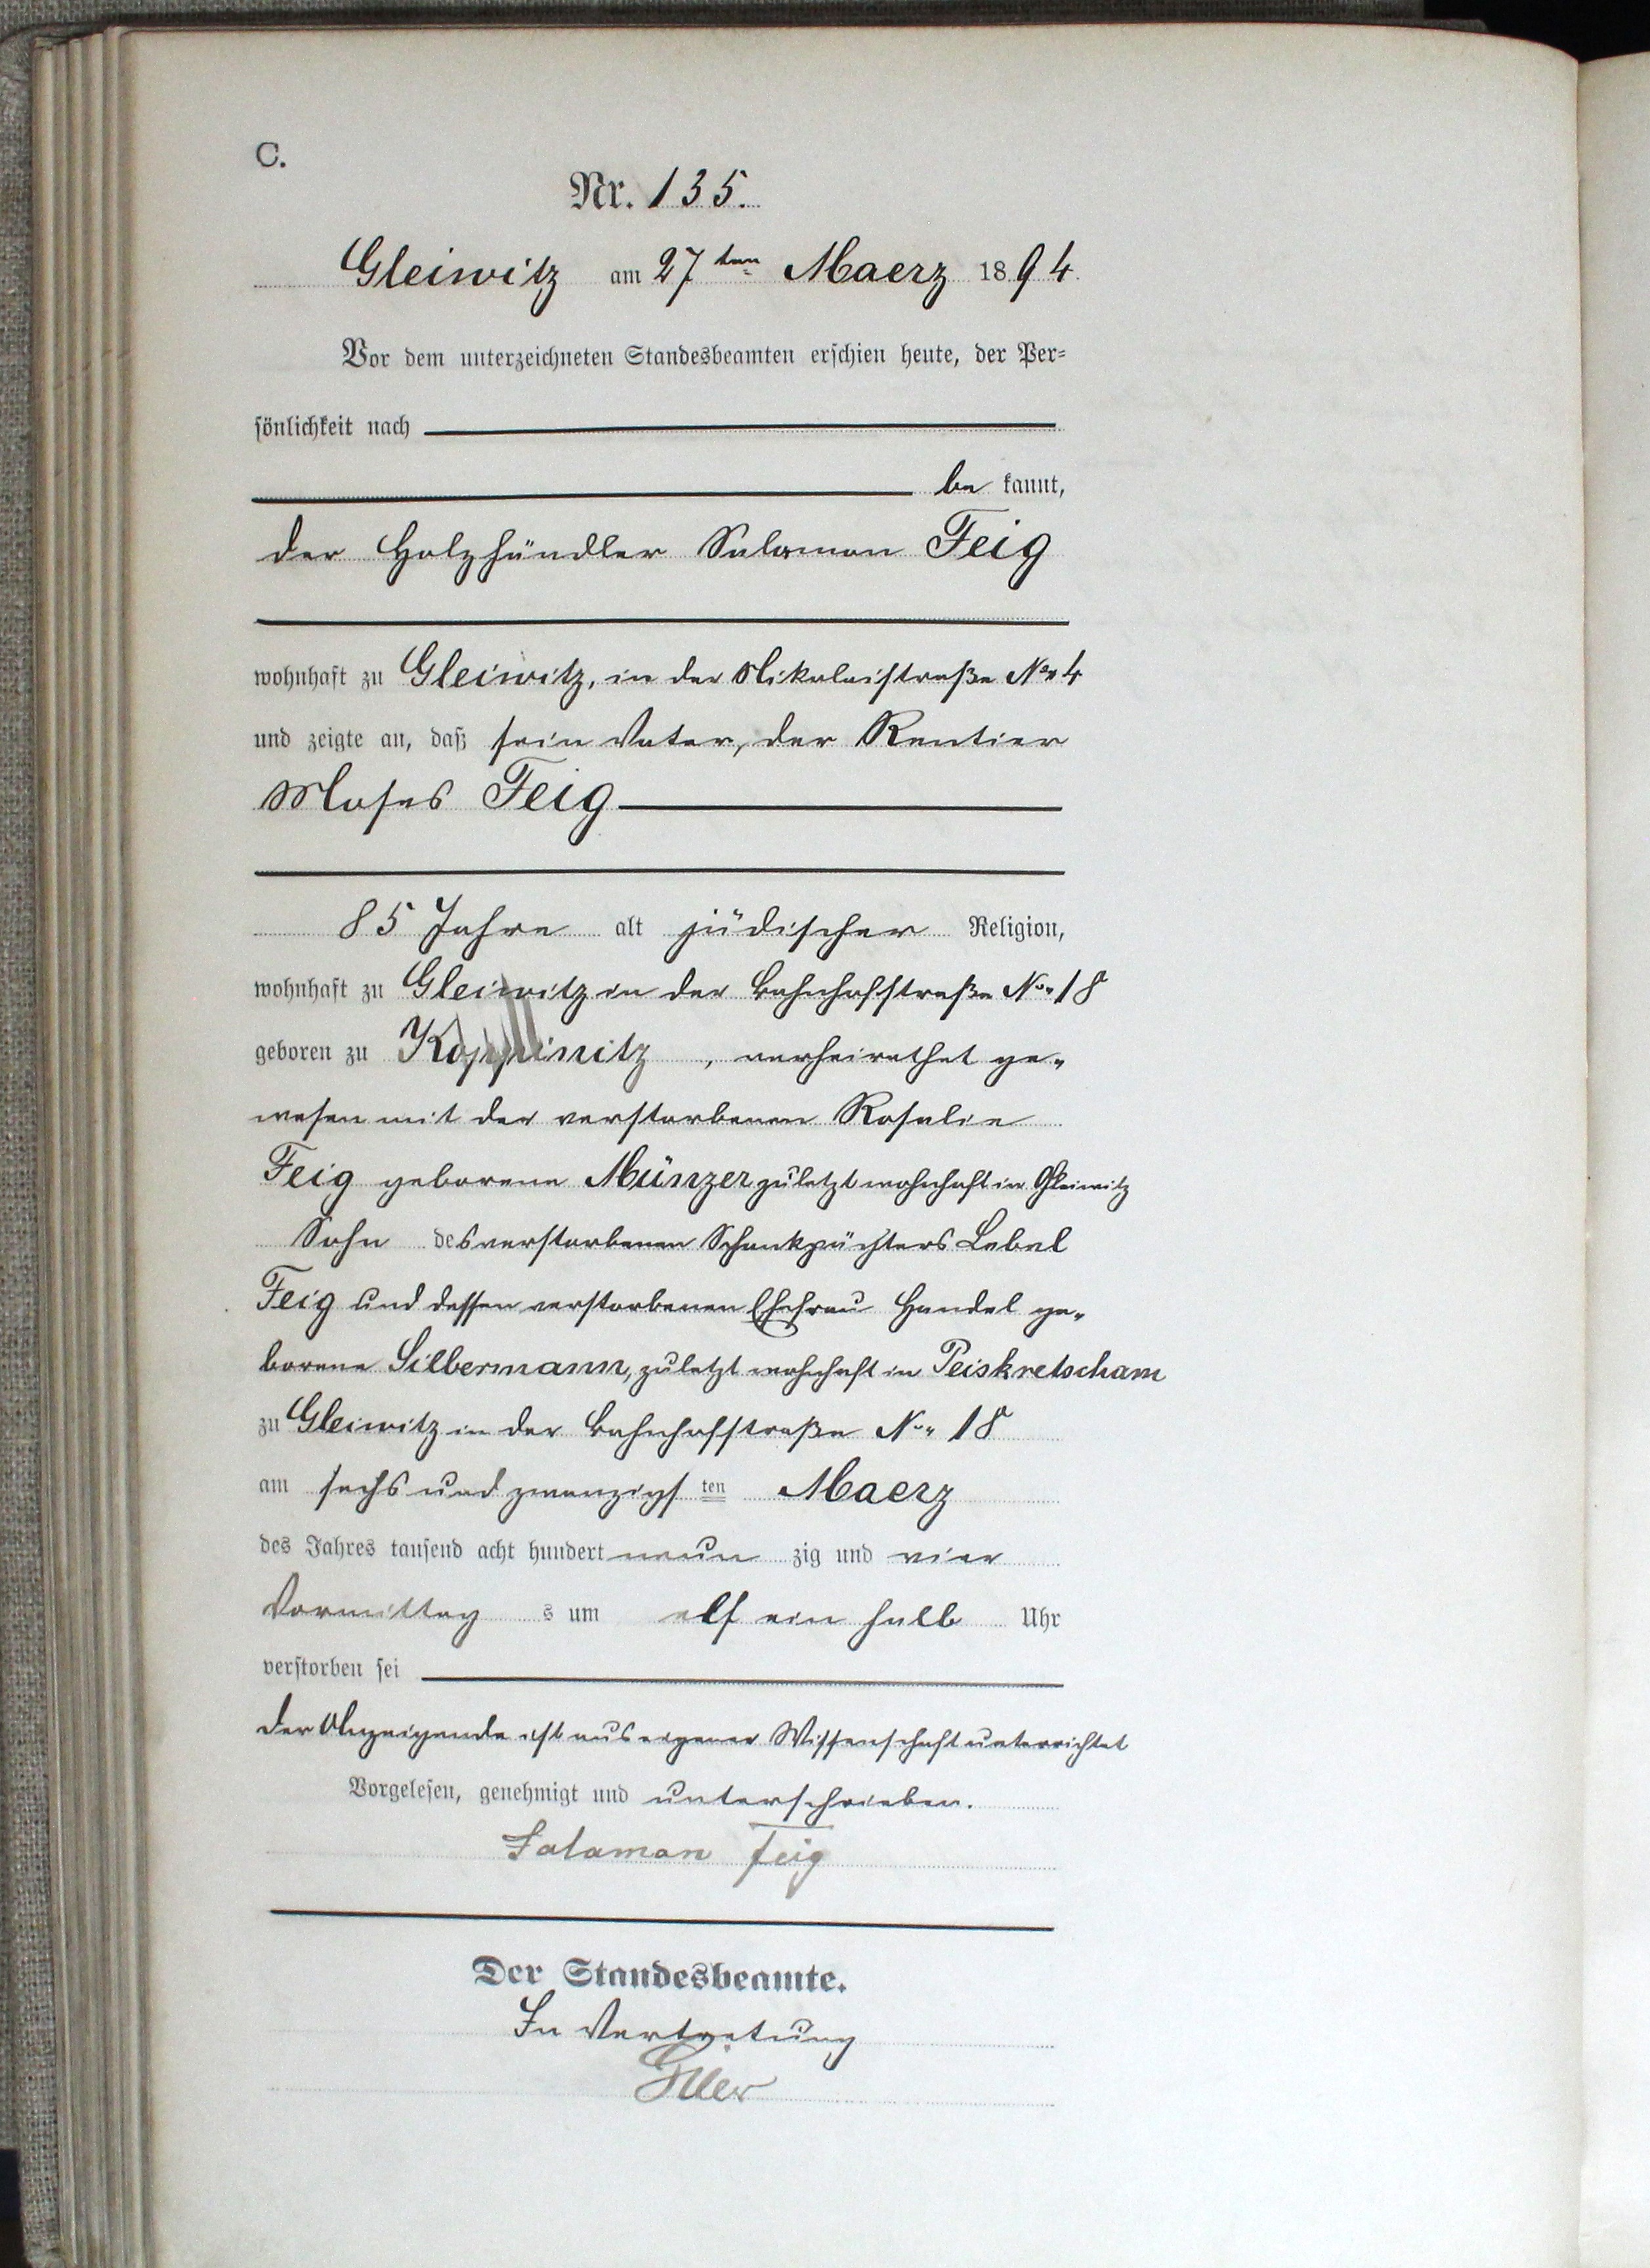 C.
Nr. 135.
Gleiwitz am 27ten Maerz 1894.
Vor dem unterzeichneten Standesbeamten erschien heute, der Per=
sönlichkeit nach
be kannt,
der Holzhändler Salomon Feig
wohnhaft zu Gleiwitz, in der Nikolaistraße No 4
und zeigte an, daß sein Vater, der Rentier
Moses Feig
85 Jahre alt jüdischer Religion,
wohnhaft zu Gleiwitz in der Bahnhofstraße No 18
geboren zu Koppinitz, verheirathet ge-
wesen mit der verstorbenen Rosalie
Feig geborene Münzer zuletzt wohnhaft in Gleiwitz
Sohn des verstorbenen Schankpächters Lebel
Feig und dessen verstorbenen Ehefrau Handel ge-
borene Silbermann, zuletzt wohnhaft in Peiskretscham
zu Gleiwitz in der Bahnhofstraße No 18
am sechs und zwanzigsten Maerz
des Jahres tausend acht hundert neun zig und vier
Vormittag s um elf ein halb Uhr
verstorben sei
Der Anzeigende ist aus eigener Wissenschaft unterrichtet
Vorgelesen, genehmigt und unterschrieben.
Salamon Feig
Der Standesbeamte.
In Vertretung